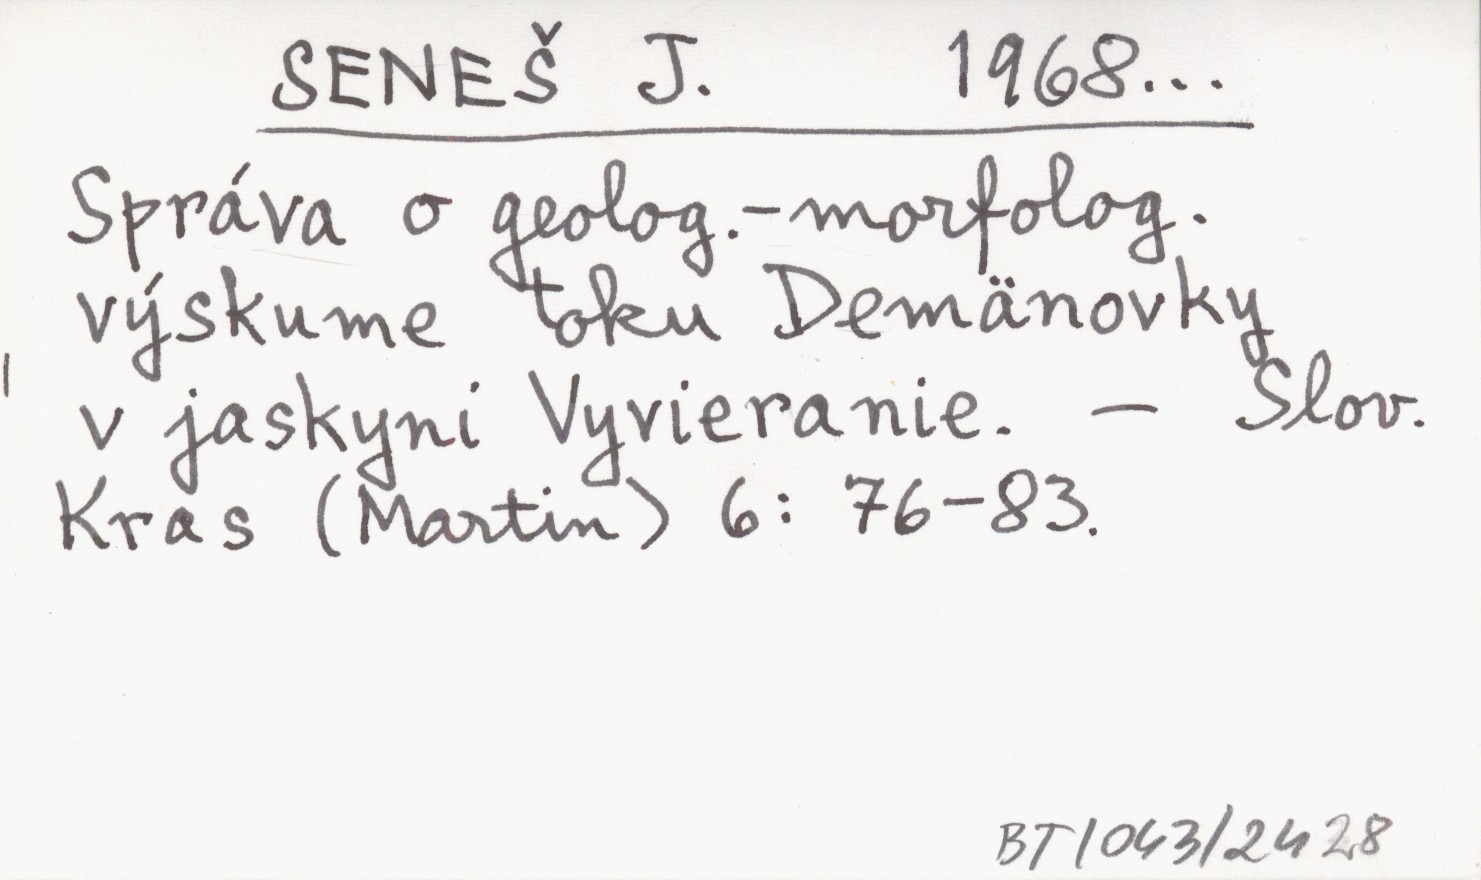 SENEŠ J. 1968...
Správa o geolog.-morfolog.
výskume toku Demänovky
v jaskyni Vyvieranie. — Slov.
Kras (Martin) 6: 76-83.
BT/043/2428